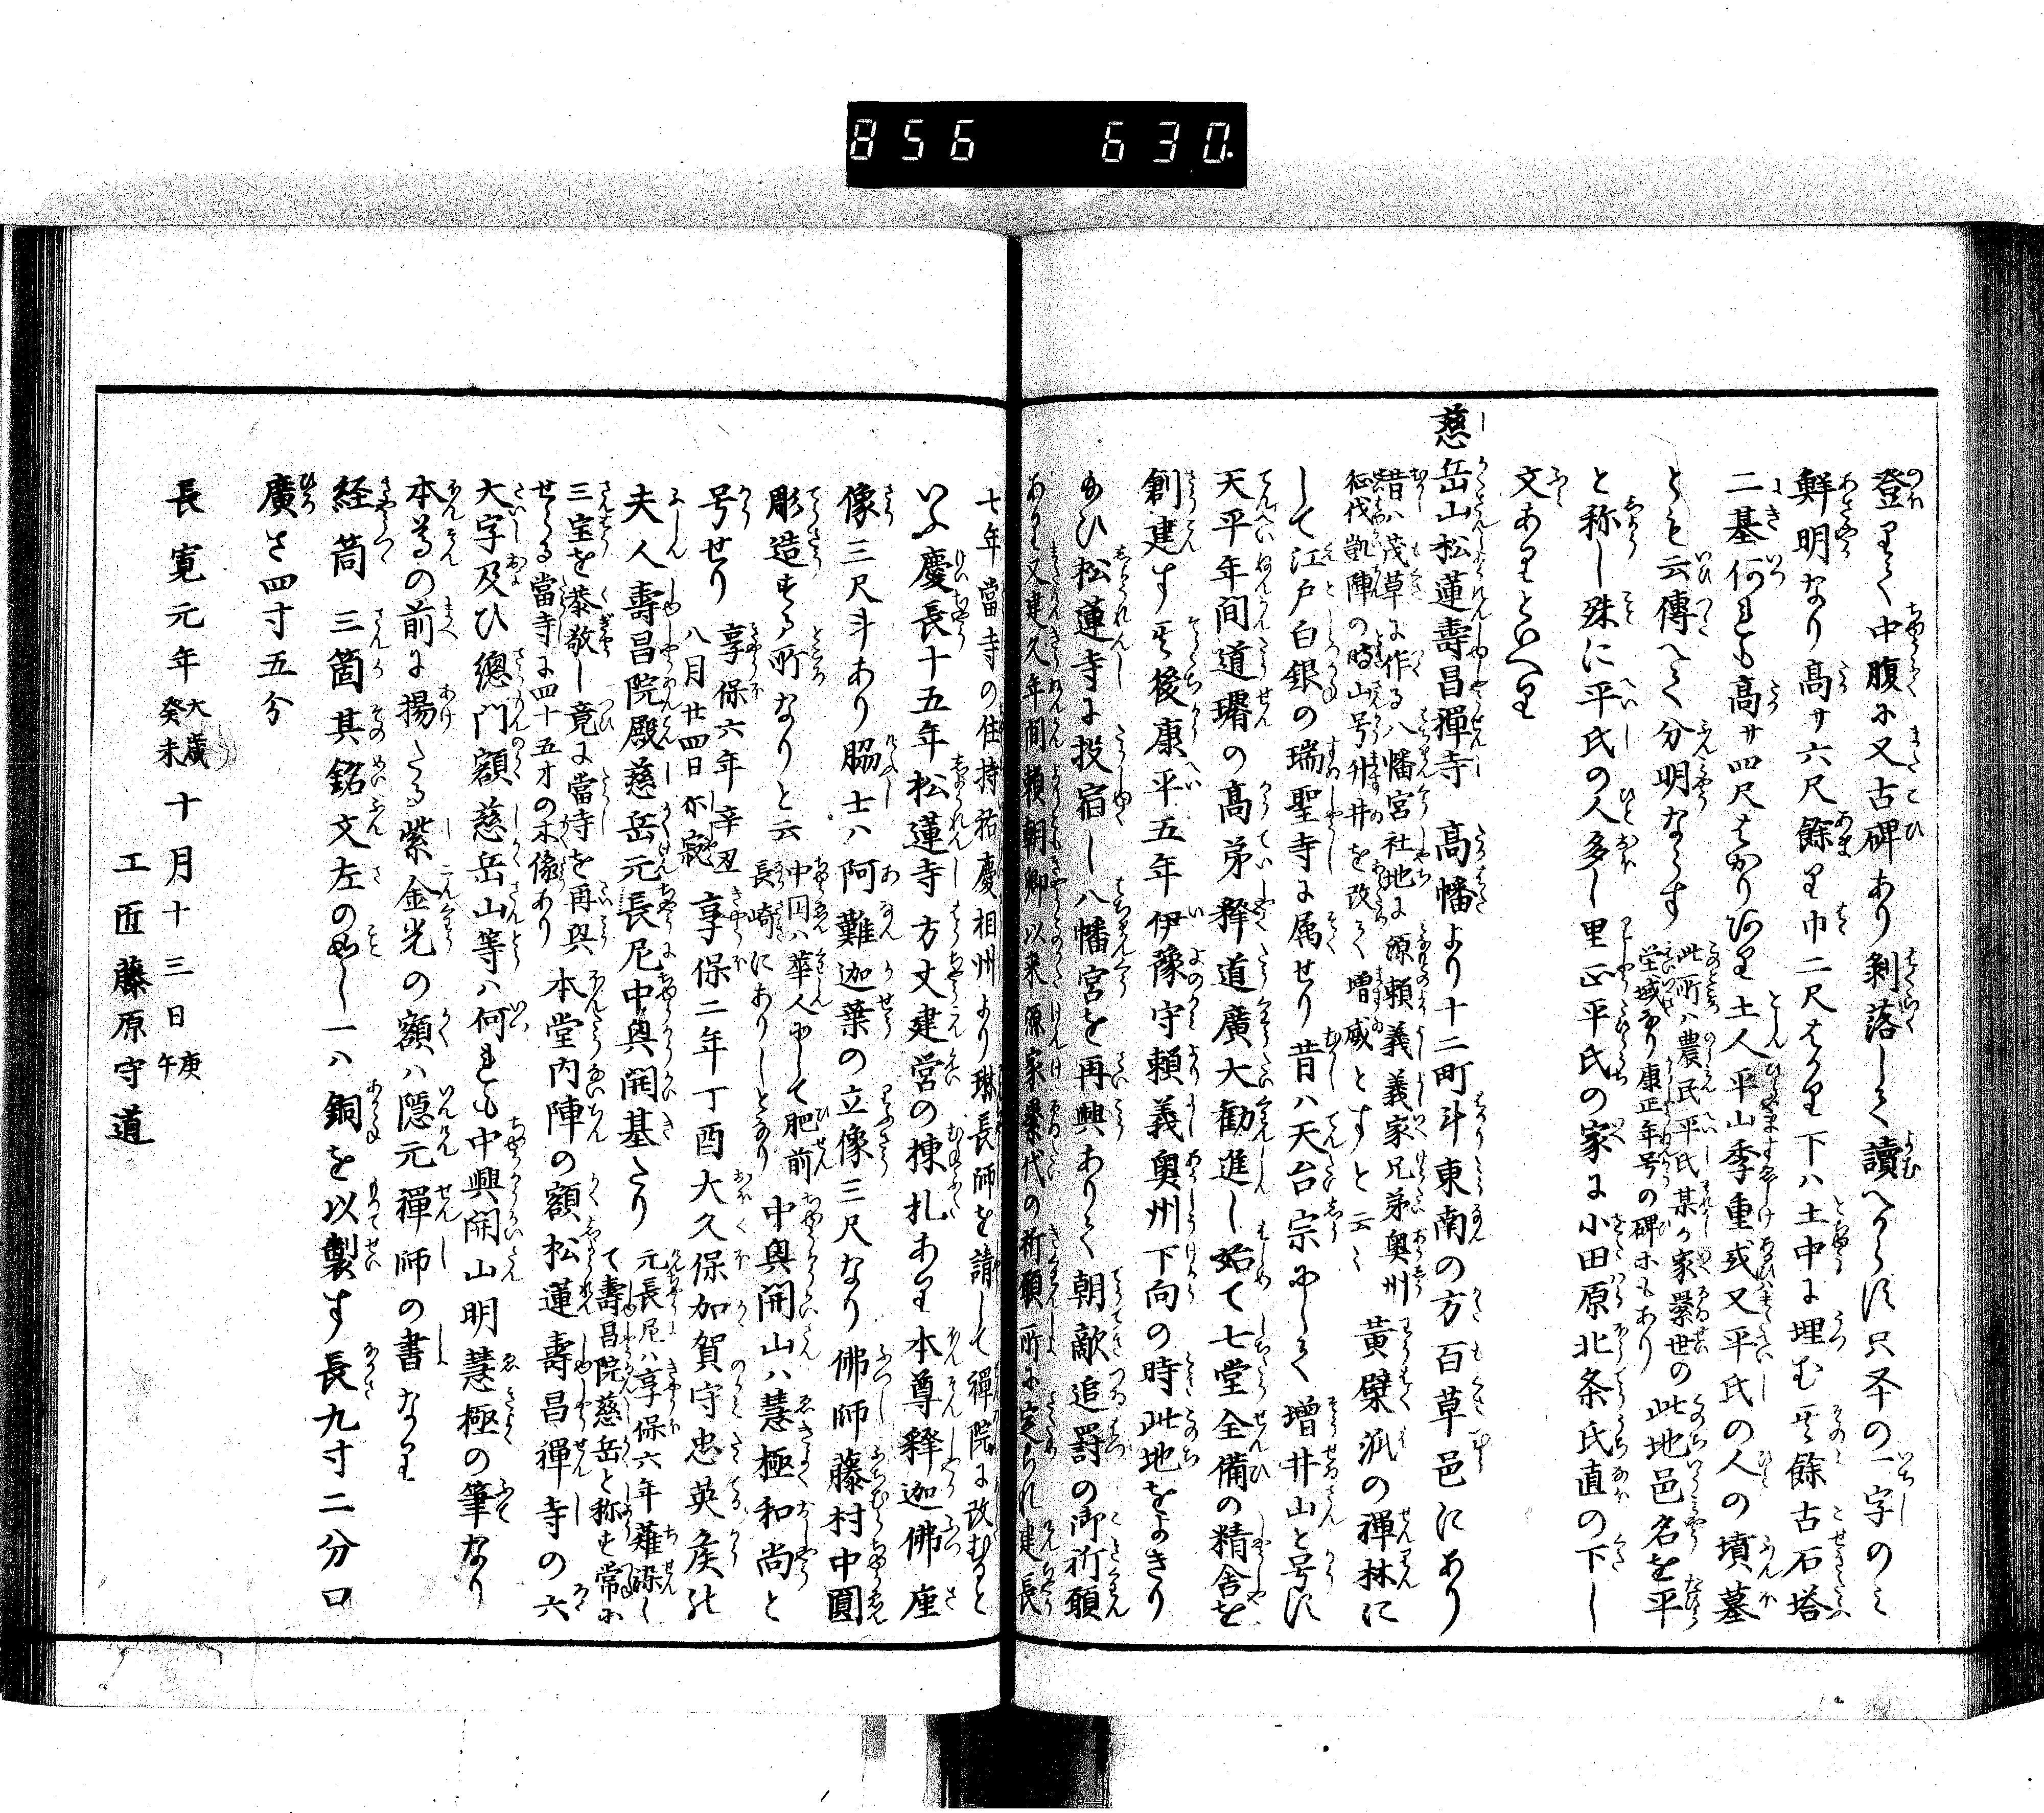 856 630.
登りて中腹に又古碑あり剝落して讀へからす只卆の一字のミ
鮮明なり高サ六尺餘り巾二尺はかり下ハ土中に埋む其餘古石塔
二基何れも高サ四尺はかりあり土人平山季重或又平氏の人の墳墓
とも云傳へて分明ならす
此所ハ農民平氏某か家累世の
塋域なり康正年号の碑ホもあり
此地邑名を平
と称し殊に平氏の人多し里正平氏の家に小田原北条氏直の下し
文ありといへり
慈岳山松蓮壽昌禪寺 高幡より十二町斗東南の方百草邑にあり
昔ハ茂草に作る八幡宮社地に源頼義義家兄弟奥州
征伐凱陣の時山号舛井を改て増威とすと云々
黄檗派の禪林に
して江戸白銀の瑞聖寺に属せり昔ハ天台宗にして増井山と号す
天平年间道璿の高弟釋道廣大勧進し始て七堂全備の精舎を
創建す其後康平五年伊豫守頼義奥州下向の時此地をよきり
給ひ松蓮寺に投宿し八幡宮を再興ありて朝敵追罸の御祈願
あり又建久年間頼朝卿以来源家累代の祈願所に定られ建長
七年當寺の住持祐慶相州より琳長師を請して禪院に改むると
いふ慶長十五年松蓮寺方丈建営の棟札あり本尊釋迦佛座
像三尺斗あり脇士ハ阿難迦葉の立像三尺なり佛師藤村中圓
彫造する所なりと云
中圓ハ華人にして肥前
長崎にありしとなり
中興開山ハ慧極和尚と
号せり
享保六年辛丑
八月廿四日示寂
享保二年丁酉大久保加賀守忠英矦の
夫人壽昌院殿慈岳元長尼中興開基たり
元長尼ハ享保六年薙染し
て壽昌院慈岳と称す常に
三宝を恭敬し竟に當寺を再興
せらる當寺に四十五才の木像あり
本堂内陣の額松蓮壽昌禪寺の六
大字及ひ總門額慈岳山等ハ何れも中興開山明慧極の筆なり
本尊の前に揚たる紫金光の額ハ隠元禪師の書なり
経筒 三箇其銘文左の如し一ハ銅を以製す長九寸二分口
廣さ四寸五分
長寛元年
大歳
癸未
十月十三日
庚
午
工匠藤原守道